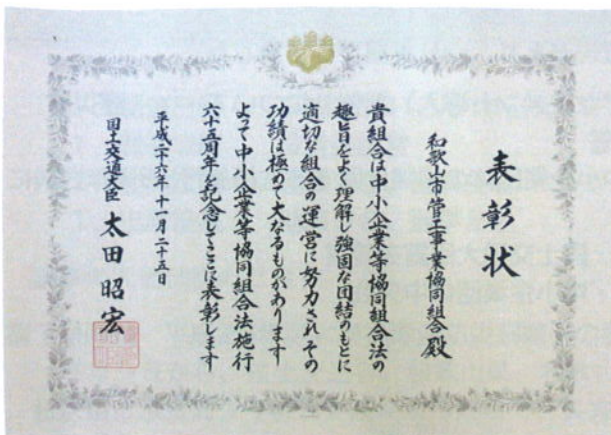 表彰状
和歌山市管工事業協同組合殿
貴組合は中小企業等協同組合法の
趣旨をよく理解し強固な団結のもとに
適切な組合の運営に努力されその
功績は極めて大なるものがあります
よって中小企業等協同組合法施行
六十五周年を記念してここに表彰します
平成二十六年十一月二十五日
国土交通大臣 太田昭宏